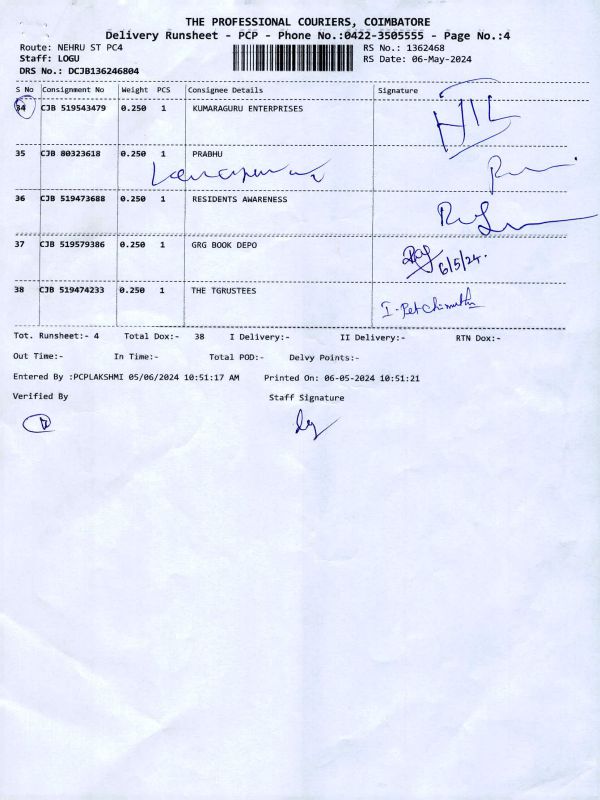 THE PROFESSIONAL COURIERS, COIMBATORE
Delivery Runsheet - PCP - Phone No.:0422-3505555 - Page No.:4
Route: NEHRU ST PC4 RS No.: 1362468
Staff: LOGU RS Date: 06-May-2024
DRS No.: DCJB136246804
S No Consignment No Weight PCS Consignee Details Signature
34 CJB 519543479 0.250 1 KUMARAGURU ENTERPRISES
35 CJB 80323618 0.250 1 PRABHU
36 CJB 519473688 0.250 1 RESIDENTS AWARENESS
37 CJB 519579386 0.250 1 GRG BOOK DEPO
6/5/24.
38 CJB 519474233 0.250 1 THE TGRUSTEES
Tot. Runsheet:- 4 Total Dox:- 38 I Delivery:- II Delivery:- RTN Dox:-
Out Time:- In Time:- Total POD:- Delvy Points:-
Entered By :PCPLAKSHMI 05/06/2024 10:51:17 AM Printed On: 06-05-2024 10:51:21
Verified By Staff Signature